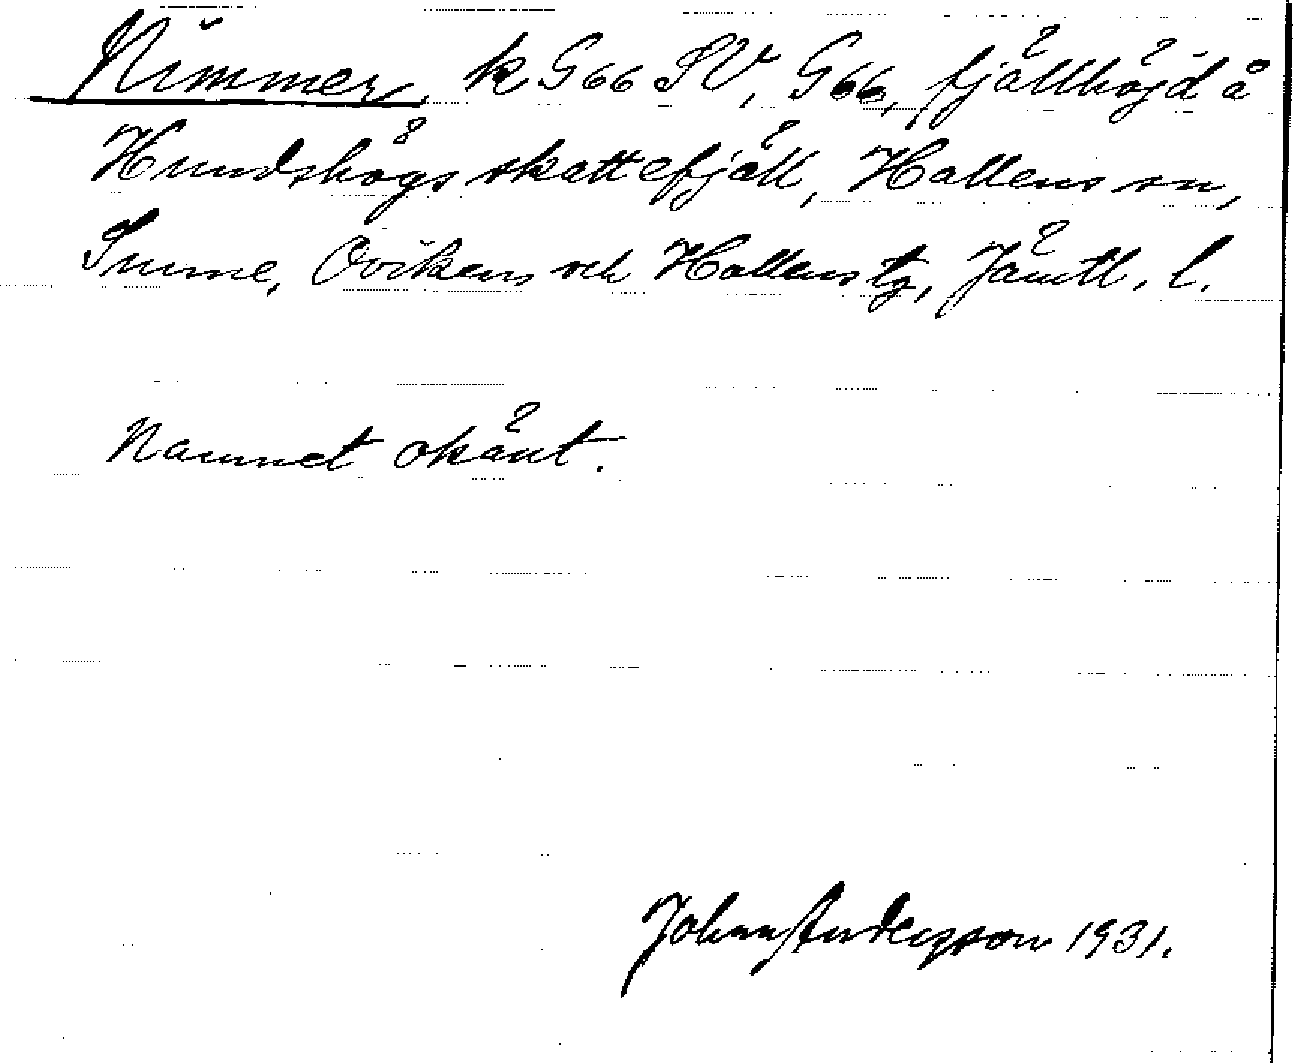 Nimmer, k G66 SV, G66, fjällhöjd å
Hundshögs skattefjäll, Hallens sn,
Sunne, Ovikens och Hallens tg, Jämtl. l.
Namnet okänt.
Johan Andersson 1931.